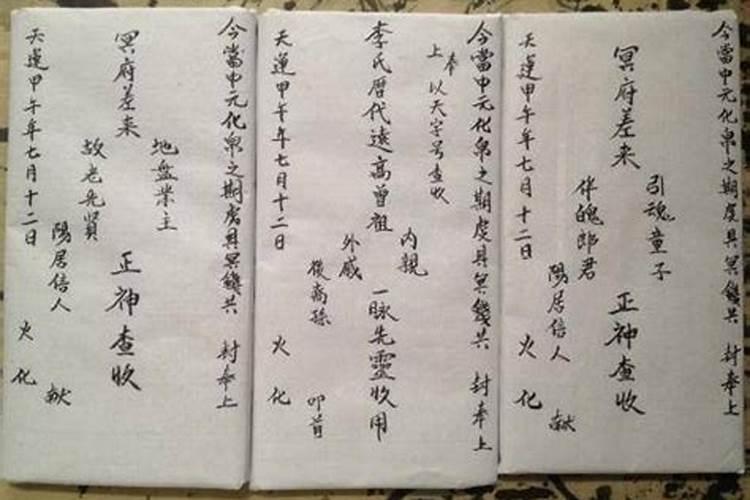 今當中元化帛之期虔具冥錢共 封奉上
引魂童子
冥府差来 正神查收
伴魄郎君
陽居信人 献
天運甲午年七月十二日 火化
今當中元化帛之期虔具冥錢共 封奉上
奉
上 以天字号查收
内親
李氏厯代遠高曾祖 一脉先靈收用
外戚
後裔孫 叩首
天運甲午年七月十二日 火化
今當中元化帛之期虔具冥錢共 封奉上
地盤業主
冥府差来 正神查收
故老先賢
陽居信人 献
天運甲午年七月十二日 火化